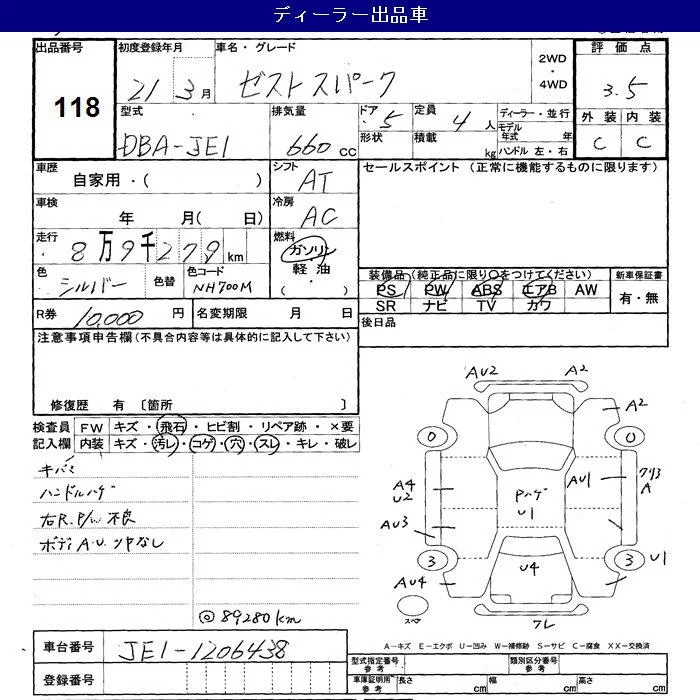 ディーラー出品車
出品番号
118
初度登録年月
21 3月
車名・グレード
ゼスト スパーク
2WD
・
4WD
評価点
3.5
型式
DBA-JE1
排気量
660cc
ドア
5
形状
定員
4人
積載
kg
ディーラー・並行
モデル年式 年
ハンドル 左・右
外装 内装
C C
車歴
自家用・( )
シフト
AT
セールスポイント (正常に機能するものに限ります)
車検
年 月( 日)
冷房
AC
走行
8万9千279km
燃料
ガソリン
軽油
( ・ )
色
シルバー
色替
色コード
NH700M
装備品(純正品に限り○をつけてください)
PS PW ABS エアB AW
SR ナビ TV カワ
新車保証書
有・無
R券 10,000円
名変期限 月 日
後日品
注意事項申告欄(不具合内容等は具体的に記入して下さい)
修復歴 有 [箇所 ]
検査員記入欄
FW キズ・飛石・ヒビ割・リペア跡・×要
内装 キズ・汚レ・コゲ・穴・スレ・キレ・破レ
キバミ
ハンドルハゲ
右R.P/W 不良
ボディA.U.ツヤなし
◎89280km
AU2 A2
A2
0 0
A4
U2
Pハゲ
U1
AU1
ワリ3
A
AU3
3 3 U1
U4
AU4
スペア
ワレ
A-キズ E-エクボ U-凹み W-補修跡 S-サビ C-腐食 XX-交換済
車台番号 JE1-1206438
登録番号
型式指定番号 参考
類別区分番号 参考
車庫証明用 参考
長さ cm 幅 cm 高さ cm